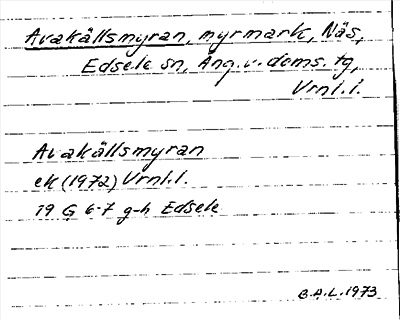 Avakällsmyran, myrmark, Näs,
Edsele sn, Ång.v. doms. tg,
Vrnl.l.
Avakällsmyran
ek (1972) Vrnl.l.
19 G 6-7 g-h Edsele
B.A.L. 1973